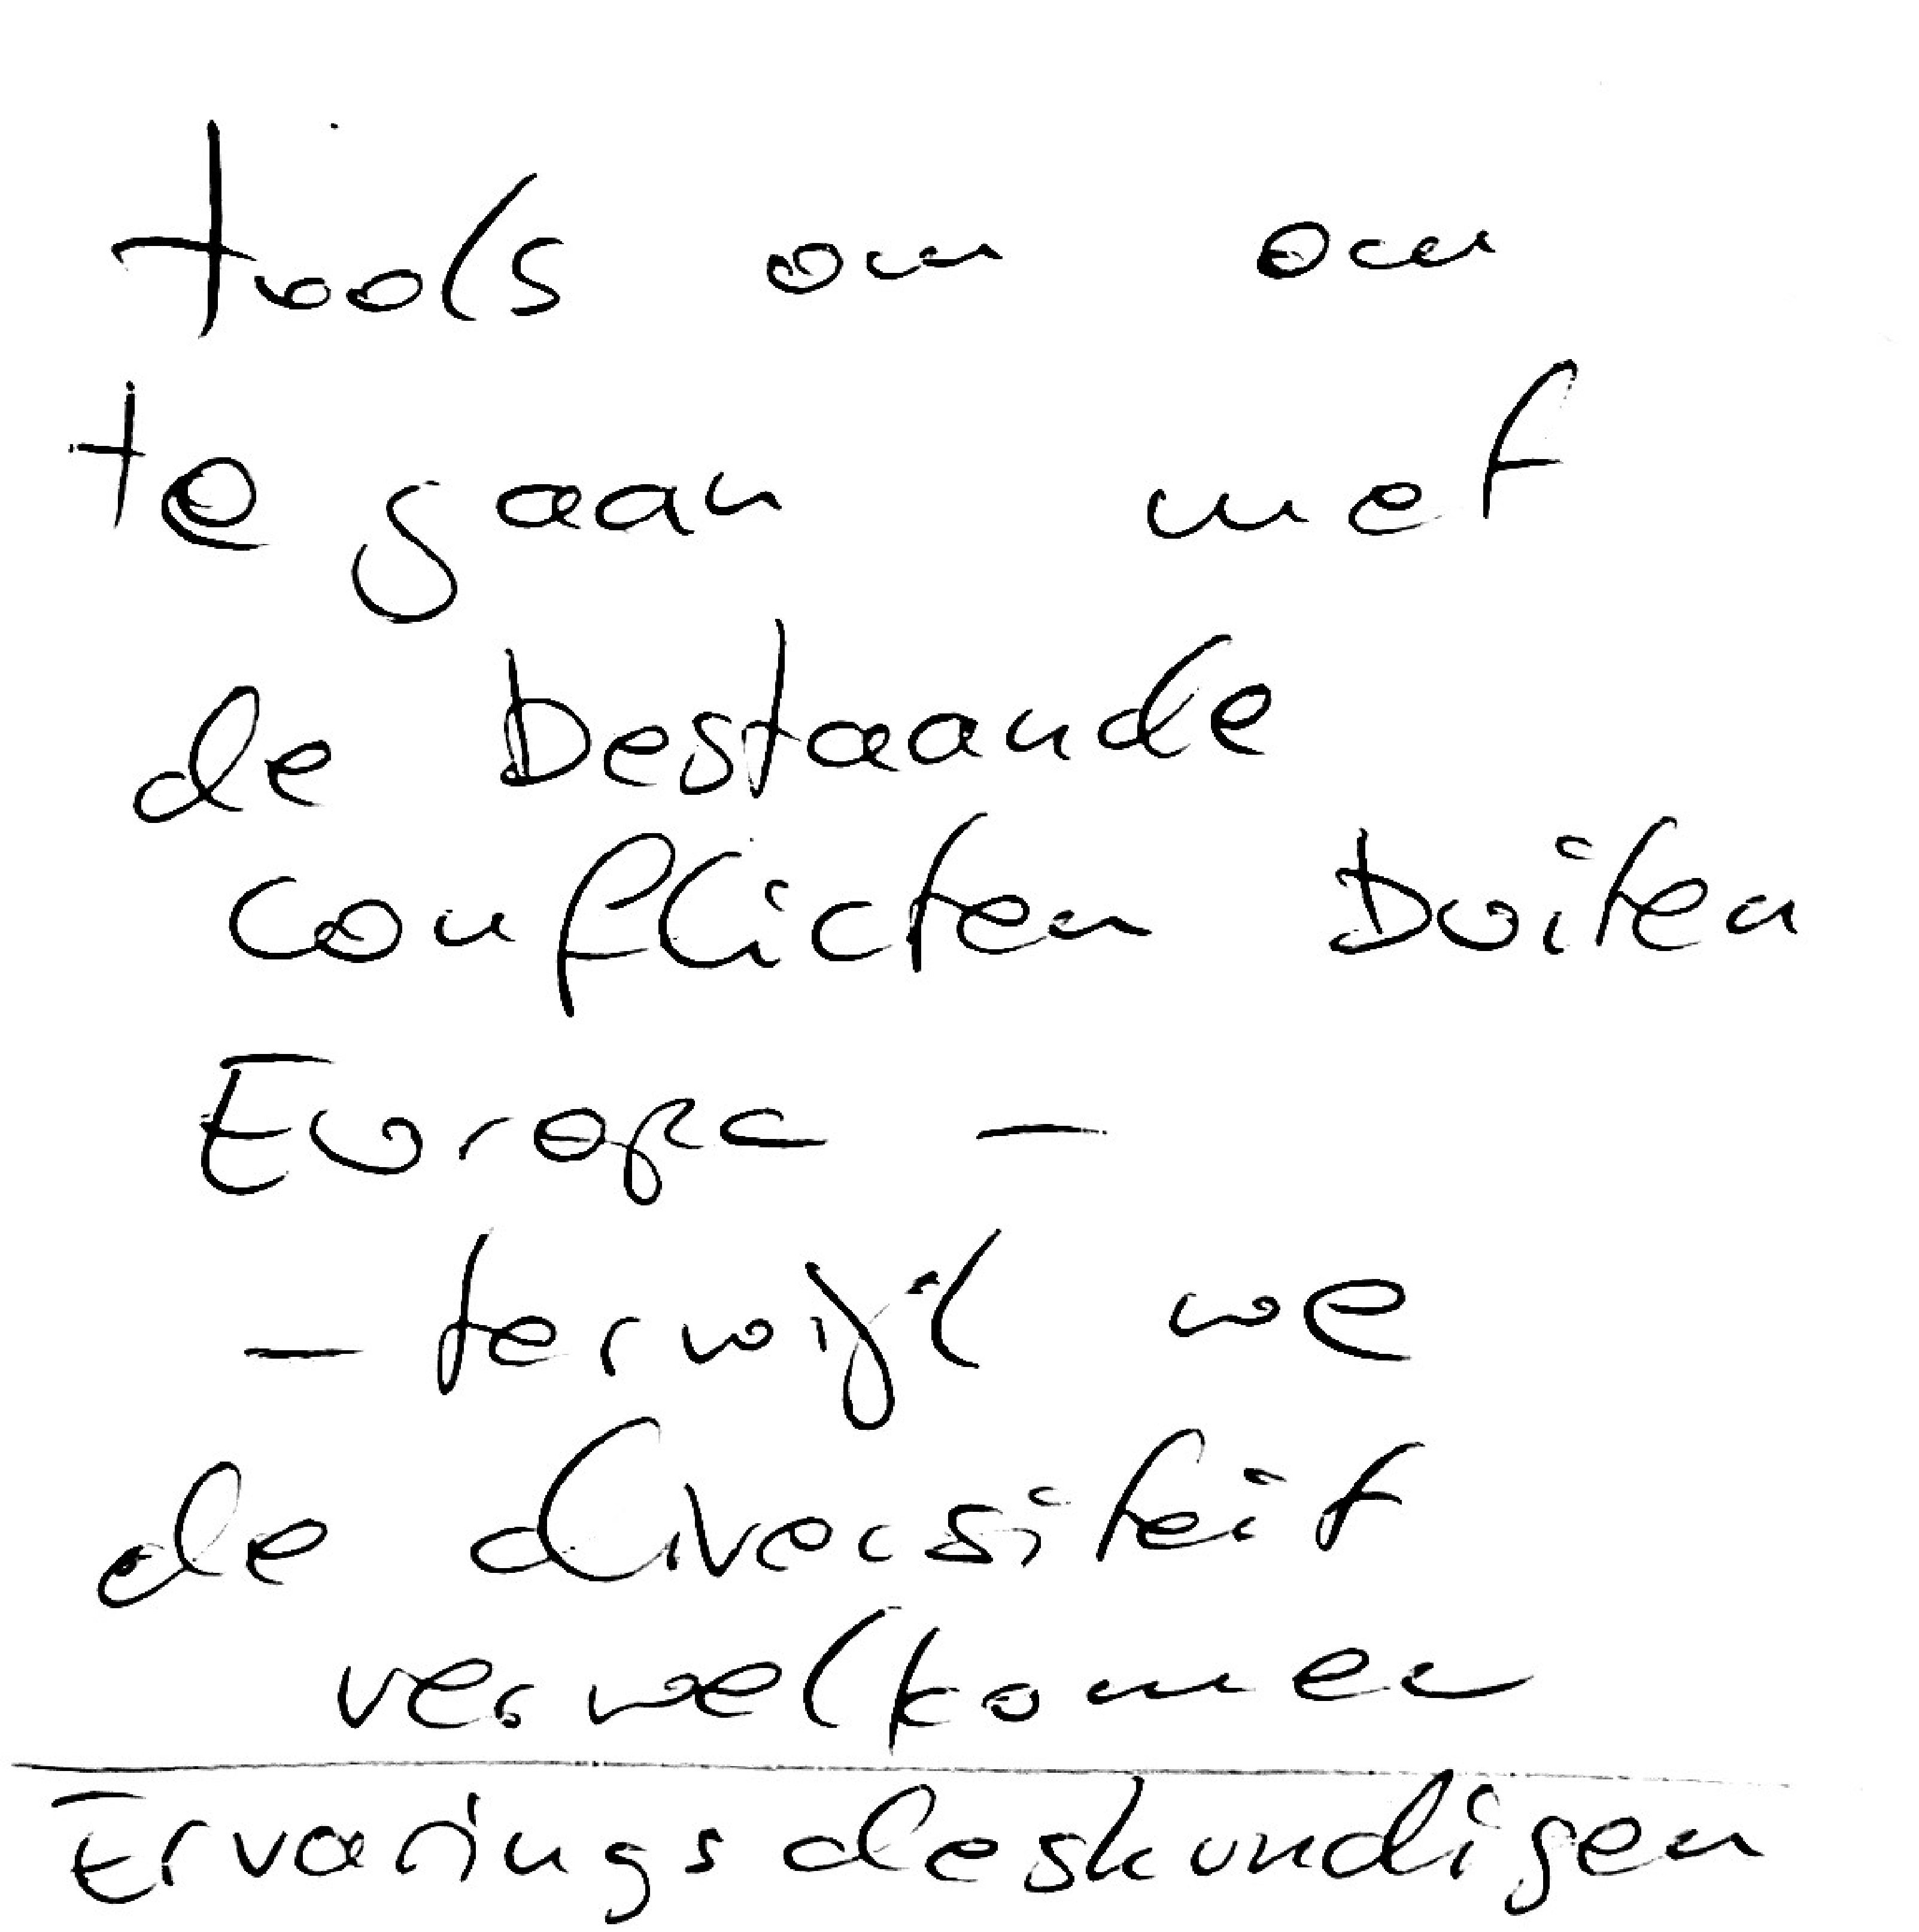 tools om om
te gaan met
de bestaande
conflicten buiten
Europa -
- terwijl we
de diversiteit
verwelkomen
Ervaringsdeskundigen